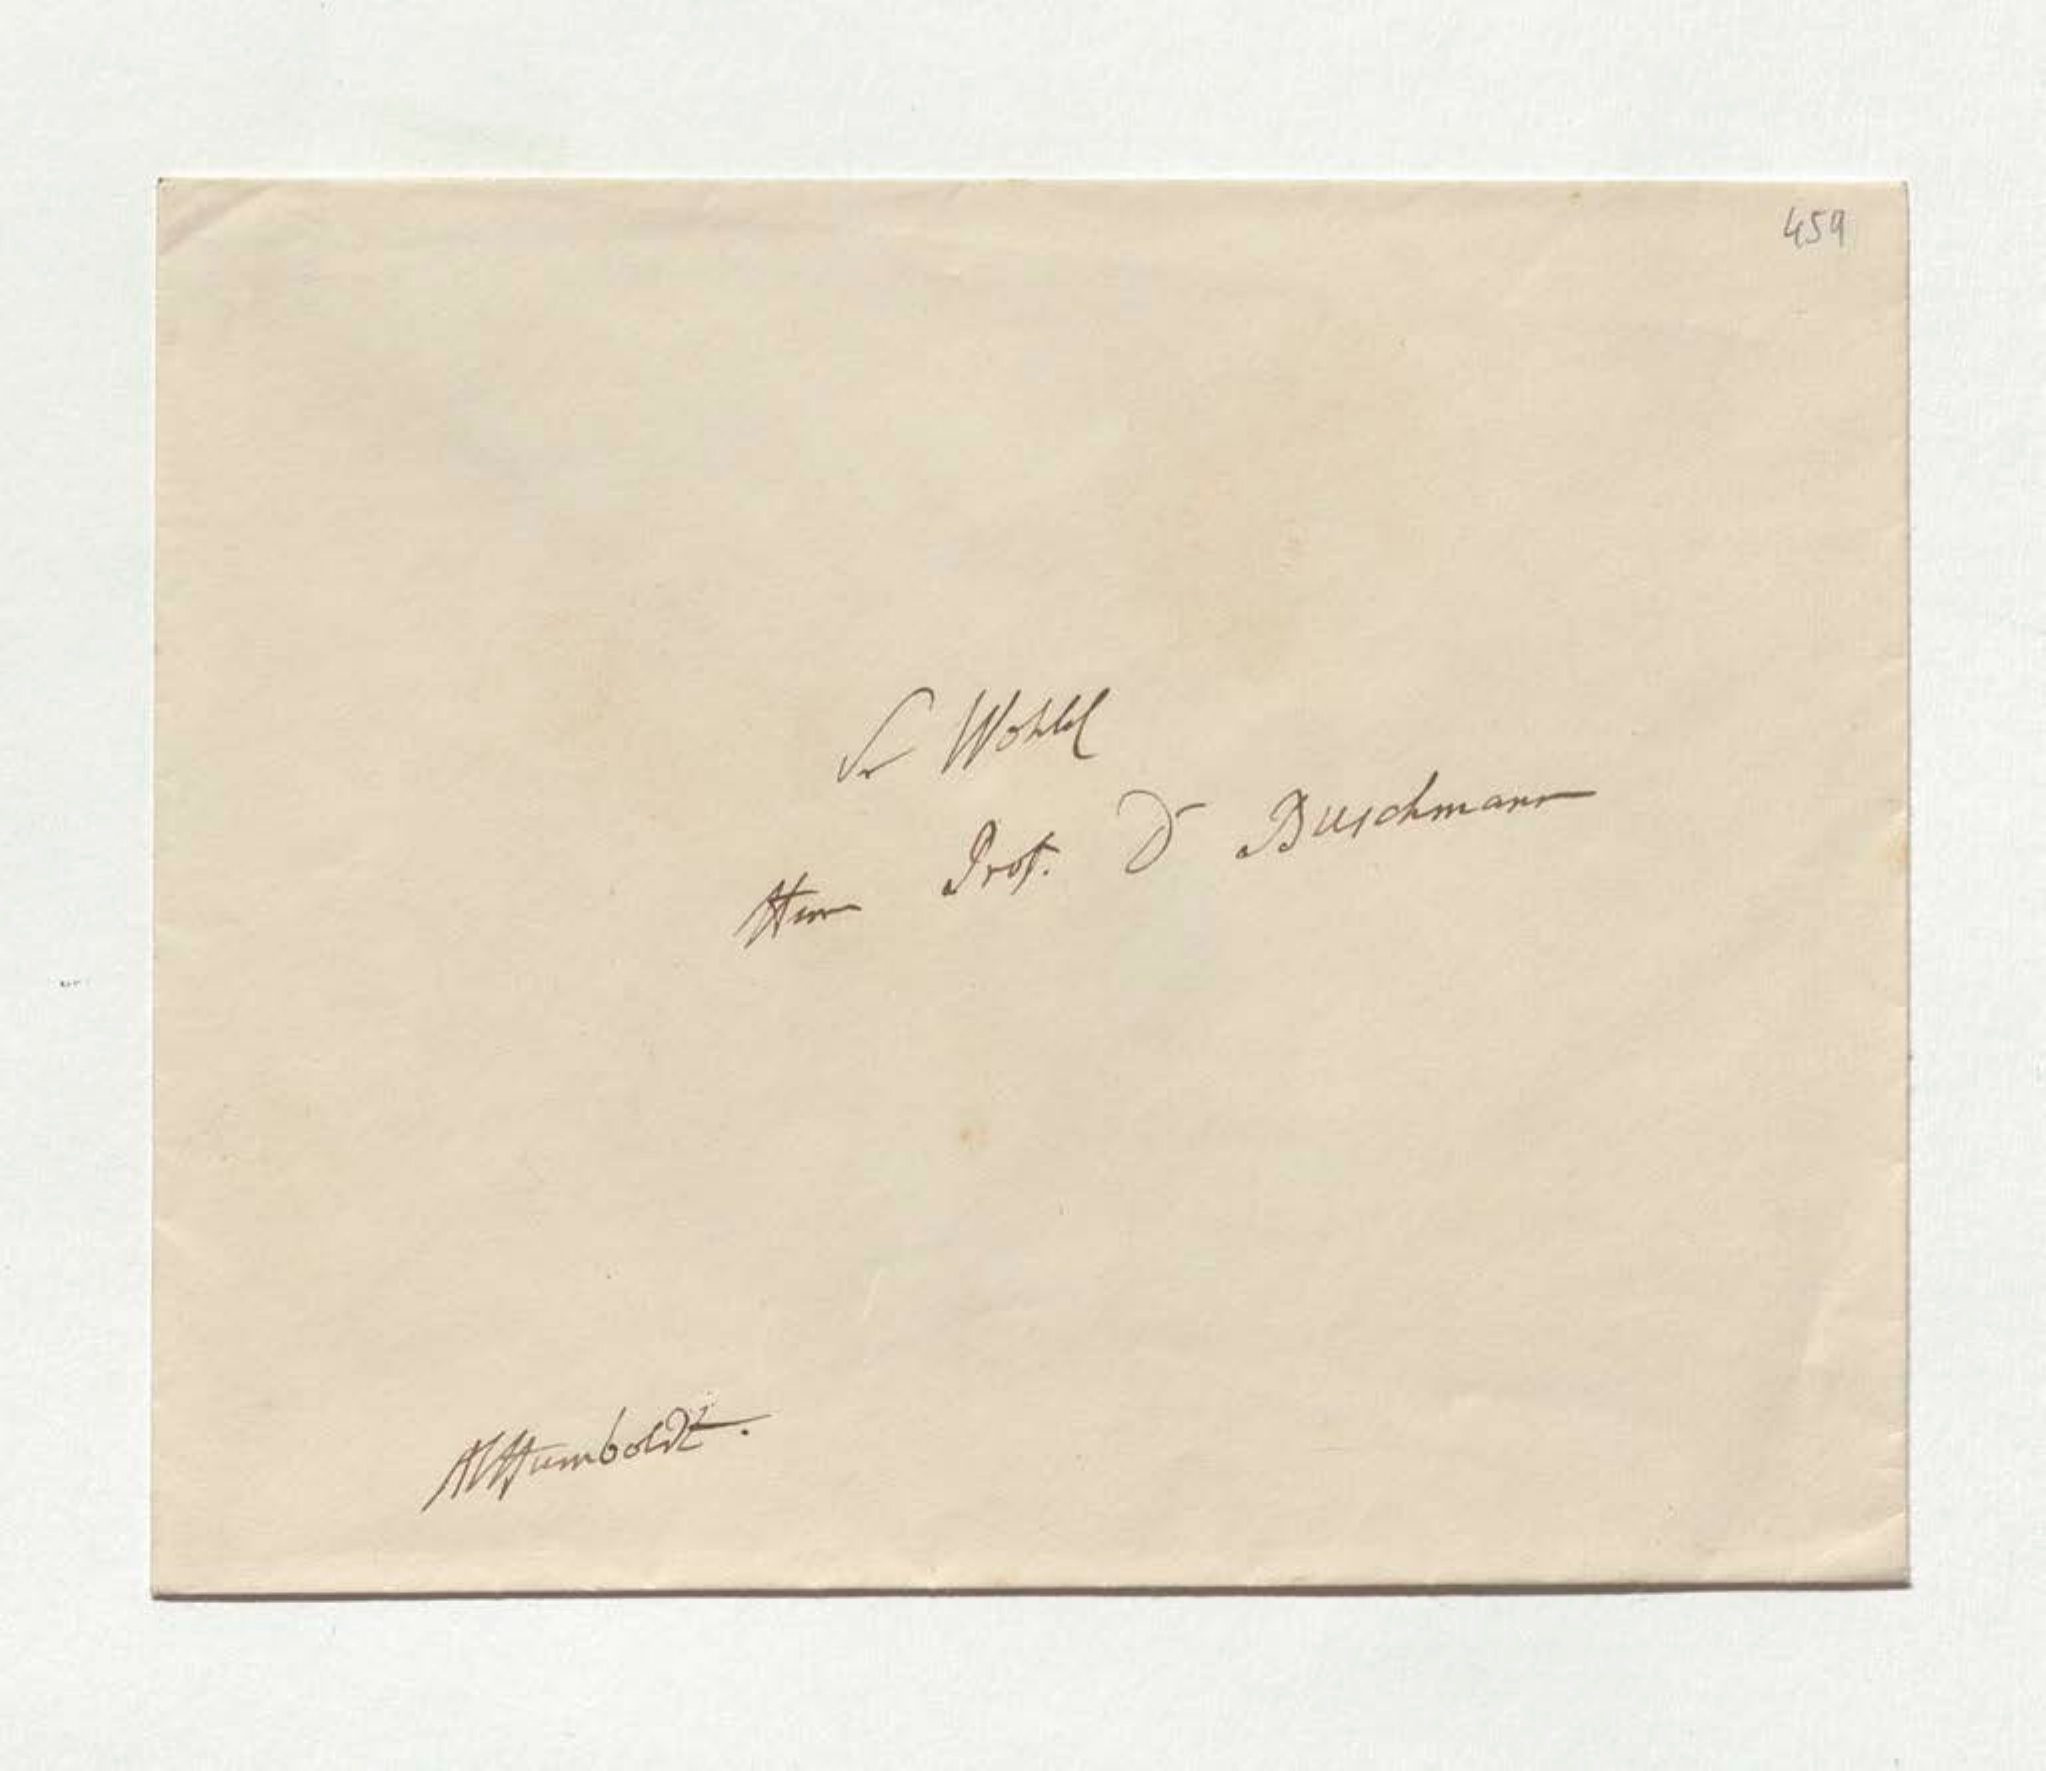 459
Sr Wohlg
Herrn Prof. Dr Buschmann
AvHumboldt.